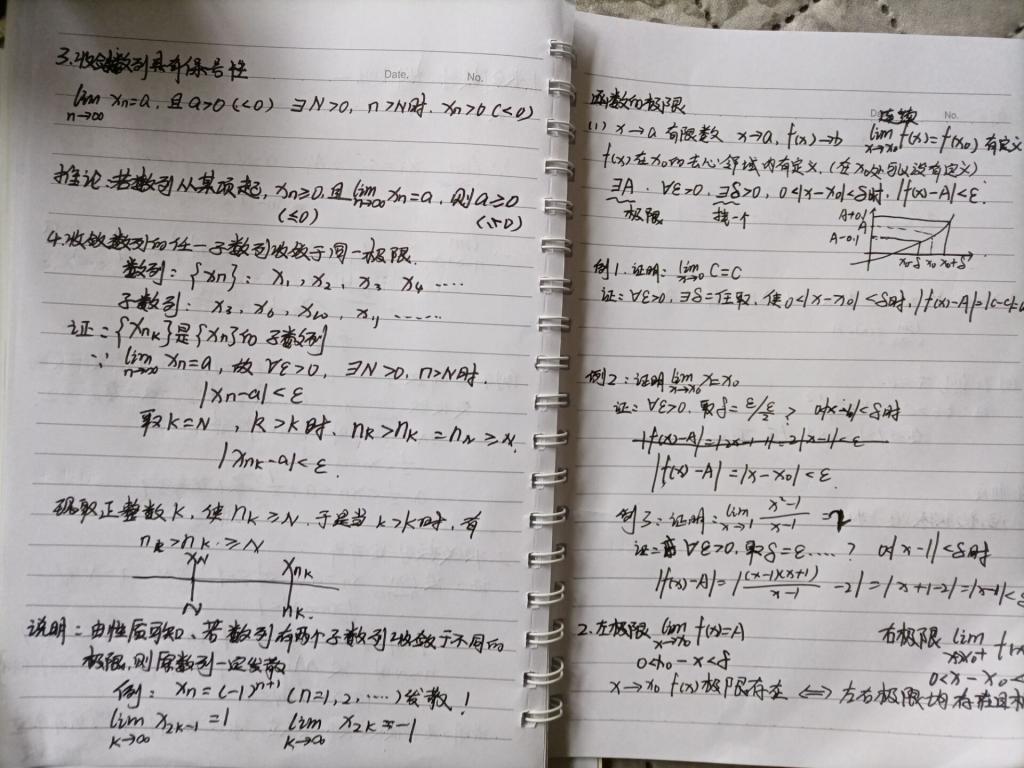 Date.
No.
3.收敛数列具有保号性
lim xn=a, 且a>0(<0) ∃N>0, n>N时, xn>0(<0)
n→∞
推论:若数列从某项起, xn≥0,且lim xn=a, 则a≥0
n→∞
(≤0) (≤0)
4.收敛数列的任一子数列收敛于同一极限.
数列:{xn}: x1, x2, x3 x4 ····
子数列: x3, x6, x10, x11 ······
证:{xnk}是{xn}的子数列
∵ lim xn=a, 故 ∀ε>0, ∃N>0, n>N时.
n→∞
|xn-a|<ε
取K=N, k>K时. nk>nK=nN≥N.
|xnk-a|<ε.
取正整数K, 使nK≥N. 于是当k>K时, 有
nk>nK≥N
xN xnk
N nk.
说明:由性质可知、若数列有两个子数列收敛于不同的
极限,则原数列一定发散
例: xn=(-1)^(n+1) (n=1,2,····)发散!
lim x2k-1=1 lim x2k=-1
k→∞ k→∞
函数的极限
连续
No.
(1) x→a 有限数 x→a, f(x)→b lim f(x)=f(x0) 有定义
x→x0
f(x)在x0的去心邻域内有定义.(在x0处可以没有定义)
∃A. ∀ε>0. ∃δ>0, 0<|x-x0|<δ时. |f(x)-A|<ε.
极限 找一个
A+0.1
A
A-0.1
x0-δ x0 x0+δ
例1. 证明: lim C=C
x→x0
证:∀ε>0, ∃δ=任取, 使0<|x-x0|<δ时, |f(x)-A|=|C-C|=
例2:证明 lim x=x0
x→x0
证:∀ε>0. 取δ=ε/ε/2? 0<|x-x0|<δ时
|f(x)-A|=|2x-1-1|=2|x-1|<ε
|f(x)-A|=|x-x0|<ε.
例3:证明: lim (x²-1)/(x-1)=2
x→1
证:∀ε>0, 取δ=ε....? 0<|x-1|<δ时
|f(x)-A|=|(x-1)(x+1)/(x-1) -2|=|x+1-2|=|x-1|<
2.左极限 lim f(x)=A 右极限 lim f(x
x→x0⁻ x→x0⁺
0<x0-x<δ 0<x-x0<
x→x0 f(x)极限存在 ⟺ 左右极限均存在且